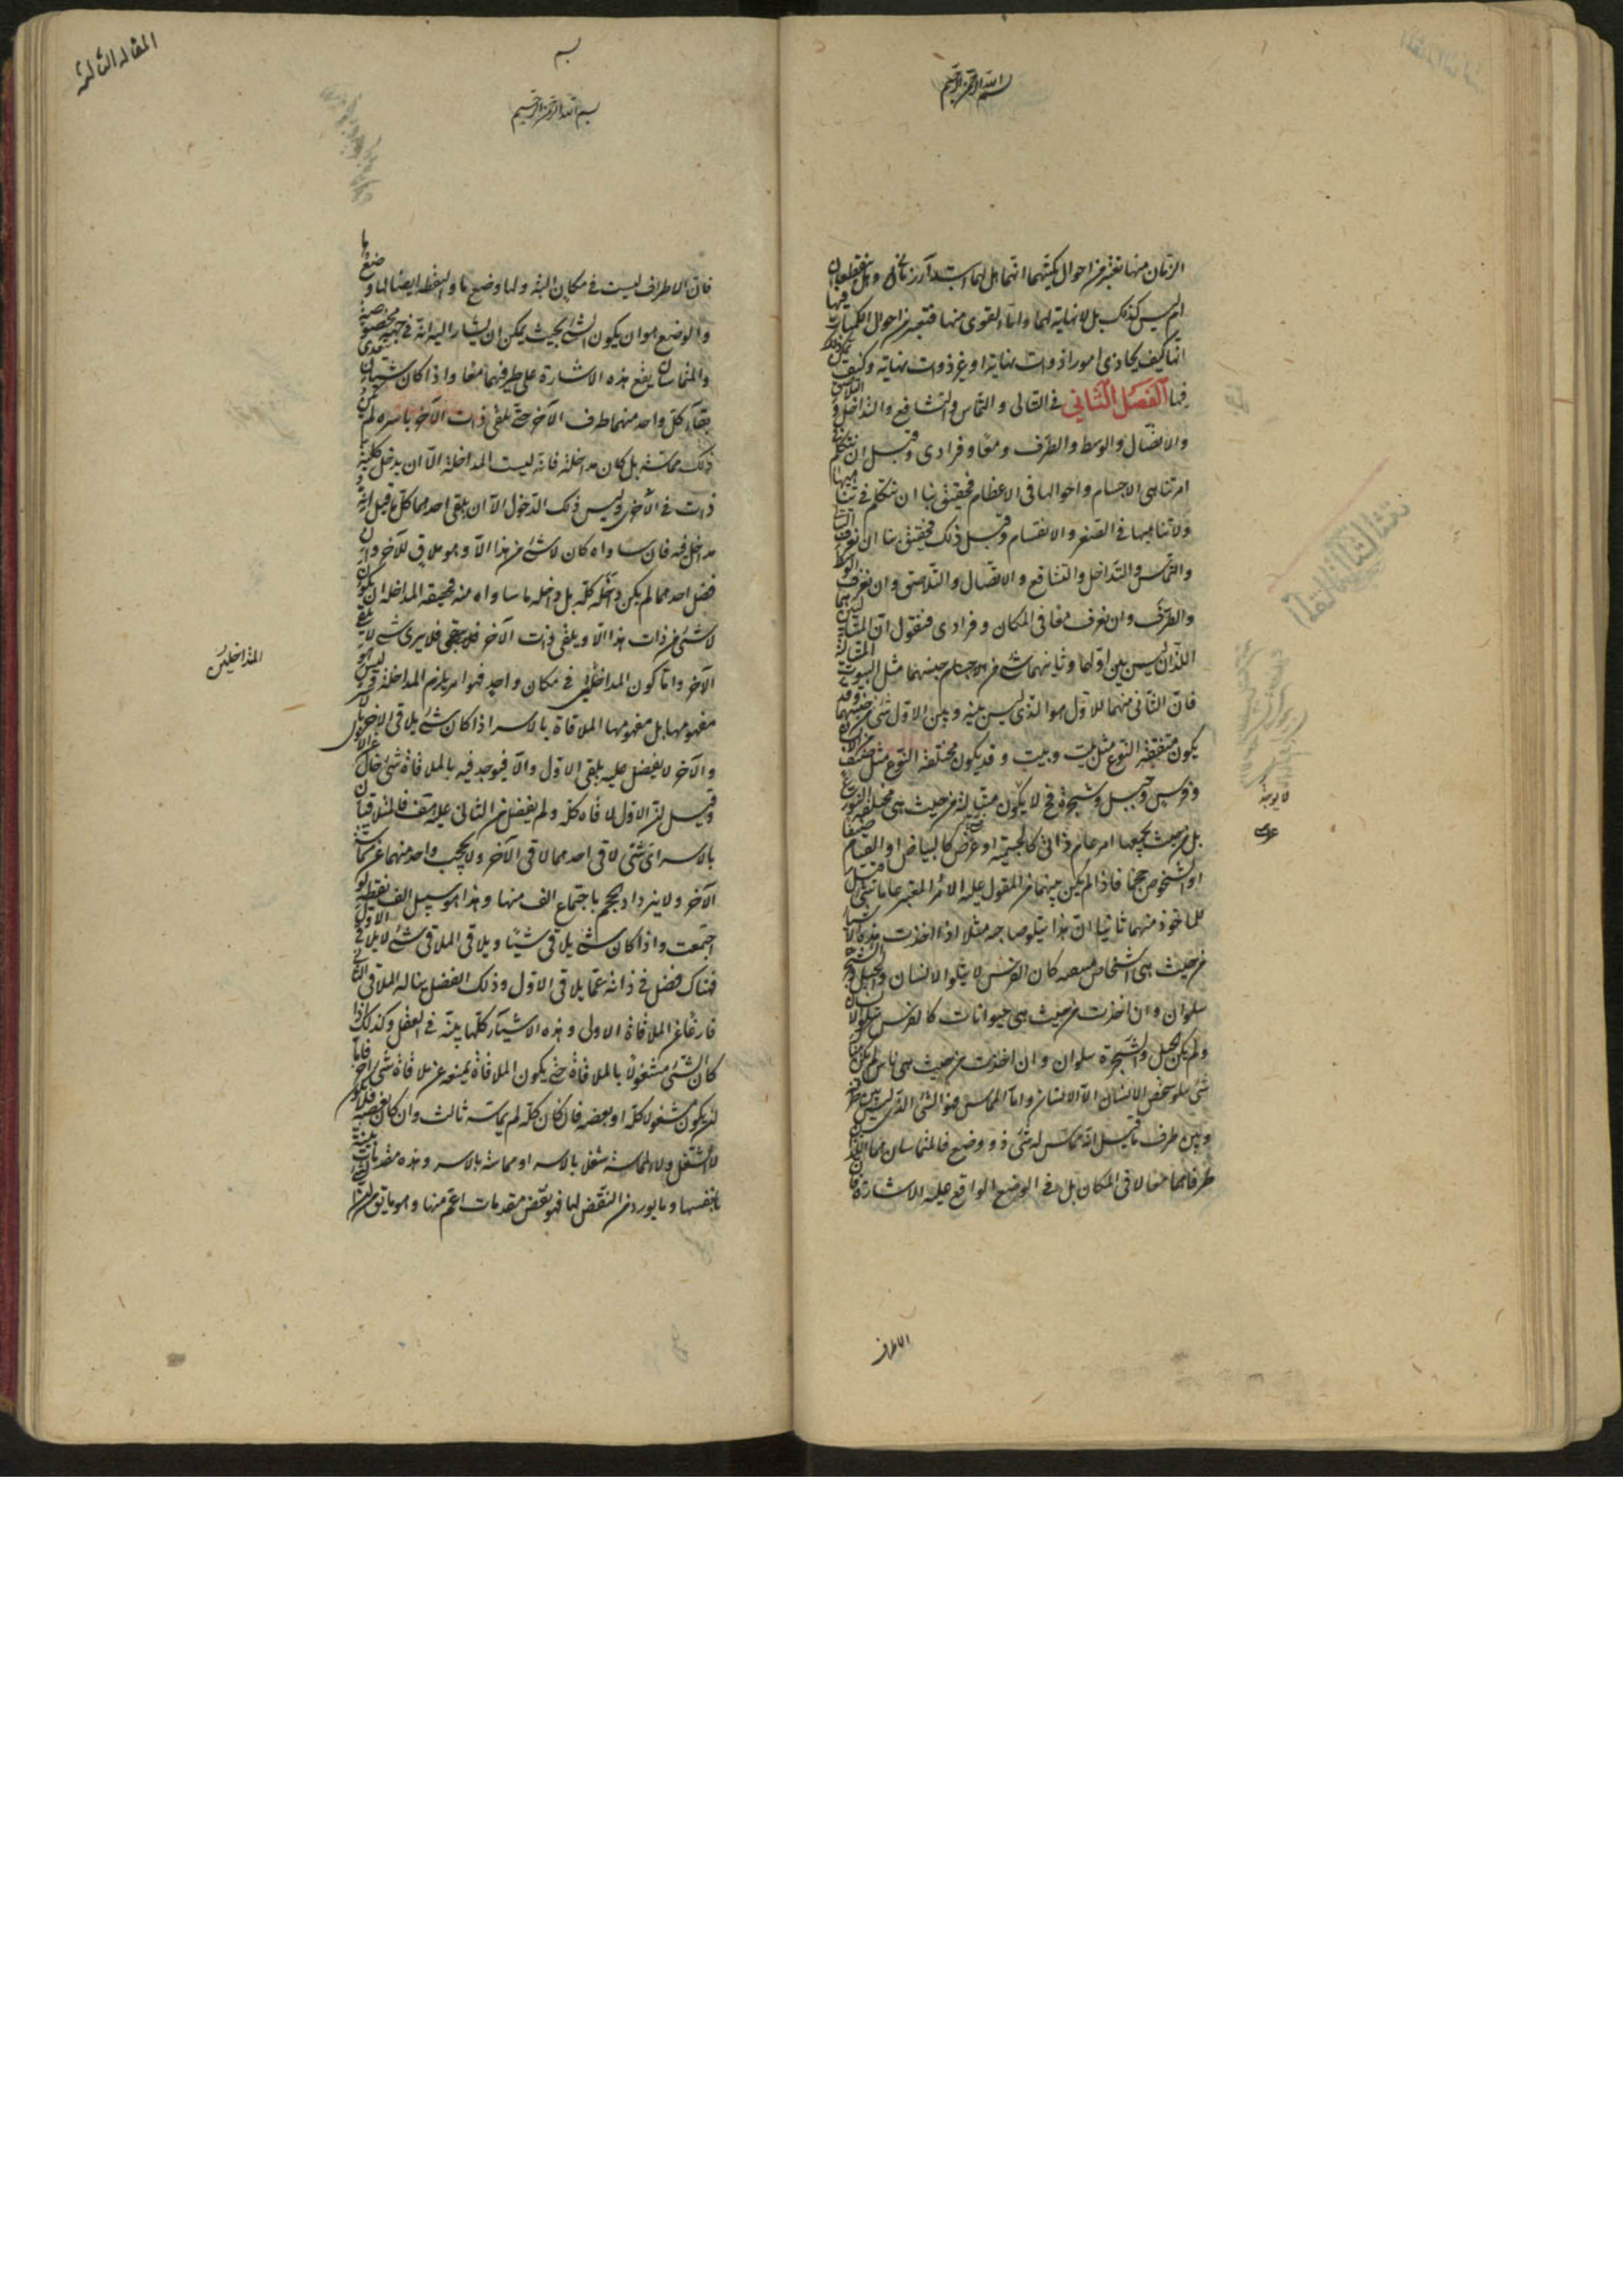 بسم الله الرحمن الرحيم
الزمان منها نعتبر من احوال كميتهما انهما هل لهما ابتداء زمانى وهل ينقطعان
ام ليس كذلك بل لا نهاية لهما واما القوى منها فنعتبر من احوال الكميات فيها
انها كيف تحاذى امورا ذوات نهاية او غير ذوات نهاية وكيف يمكن ذلك
فيها الفصل الثانى فى التتالى والتماس والتشافع والتداخل والتلاصق
والاتصال والوسط والطرف ومعا وفرادى وقبل ان نتكلم فى
امر تناهى الاجسام واحوالها فى الاعظام فحقيق بنا ان نتكلم فى تناهيها
ولا تناهيها فى الصغر والانقسام وقبل ذلك فحقيق بنا ان نعرف التتالى
والتماس والتداخل والتشافع والاتصال والتلاصق وان نعرف الوسط
والطرف وان نعرف معا فى المكان وفرادى فنقول ان المتتاليين هما
اللذان ليس بين اولهما وثانيهما شئ من جنسهما مثل البيوت المتتالية
فان الثانى منهما للاول هو الذى ليس بينه وبين الاول شئ من جنسهما وقد
يكون متفقة النوع مثل بيت وبيت وقد يكون مختلفة النوع مثل صف من انسان
وفرس وجبل وشجرة فح لا يكون متتالية من حيث هى مختلفة النوع
بل من حيث يجمعها امر عام ذاتى كالجسمية او عرضى كالبياض او القيام صفا
او الشخوص حجما فاذا لم يكن بينهما من المقول عليه الامر المعتبر عاما شئ قيل
للماخوذ منهما ثانيا ان هذا يتلو صاحبه مثلا اذا اخذت هذه الاشياء
من حيث هى اشخاص منتصبة كان الفرس لا يتلو الانسان والجبل والشجر
يتلوان وان اخذت من حيث هى حيوانات كان الفرس يتلو الانسان
ولم يكن الجبل والشجرة يتلوان وان اخذت من حيث هى ناس لم يكن هنا
شئ يتلو شخص الانسان الا الانسان واما المماس فهو الشئ الذى ليس بين طرفه
وبين طرف ما قيل انه مماس له شئ ذو وضع فالمتماسان هما اللذان
طرفاهما معا لا فى المكان بل فى الوضع الواقع عليه الاشارة فان
الاطراف
لا يوجد
عرضى
المقالة الثالثة
بسم الله الرحمن الرحيم
فان الاطراف ليست فى مكان البتة ولها وضع ما والنقطة ايضا لها وضع ما
والوضع هو ان يكون الشئ بحيث يمكن ان يشار اليه انه فى جهة مخصوصة
والمتماسان يقع هذه الاشارة على طرفيهما معا واذا كان شيئان يتعدى
بقاء كل واحد منهما طرف الآخر حتى يلقى ذات الآخر باسره لم يكن
ذلك مماسة بل كان مداخلة فانه ليست المداخلة الا ان يدخل كلية
ذات فى الآخرى وليس ذلك الدخول الا ان يلقى احدهما كل ما قيل انه
مداخل فيه فان ساواه كان لا شئ من هذا الا وهو ملاق للآخر وان
فضل احدهما لم يكن داخله كله بل داخله ما ساواه منه فحقيقة المداخلة ان يكون
لا شئ من ذات هذا الا ويلقى ذات الآخر فلا يرى شئ لا يلقى
الآخر واما كون المداخلين فى مكان واحد فهو امر يلزم المداخلة وليس هو
مفهومها بل مفهومها الملاقاة بالاسر اذا كان شئ يلاقى الآخر بالاسر
والآخر لا يفضل عليه يلقى الاول والا فيوجد فيه بالملاقاة شئ خال عن الاول
وقيل ان الاول لاقاه كله ولم يفضل من الثانى عليه هف فالمتلاقيان
بالاسر اى شئ لاقى احدهما لاقى الآخر ولا يحجب واحد منهما عن مماسة
الآخر ولا يزداد حجم باجتماع الف منها وهذا هو سبيل الف نقطة لو
اجتمعت واذا كان شئ يلاقى شيئا ويلاقى الملاقى شئ لا يلاقى الاول
فهناك فضل فى ذاته عما يلاقى الاول وذلك الفضل يناله الملاقى الثانى
فارغا عن الملاقاة الاولى وهذه الاشياء كلها بينة فى العقل وكذلك اذا
كان الشئ مشغولا بالملاقاة حتى يكون الملاقاة يمنعه عن ملاقاة شئ آخر فاما
ان يكون مشغولا كله او بعضه فان كان كله لم يماسه ثالث وان كان بعضه فلا يكون
لا شغل ولا المماسة شغلا بالاسر او مماسة بالاسر وهذه مقدمات بينة
بانفسها وما يورد من النقض لها فهو نقض مقدمات اعم منها وهو ما يق ان
المتداخلين